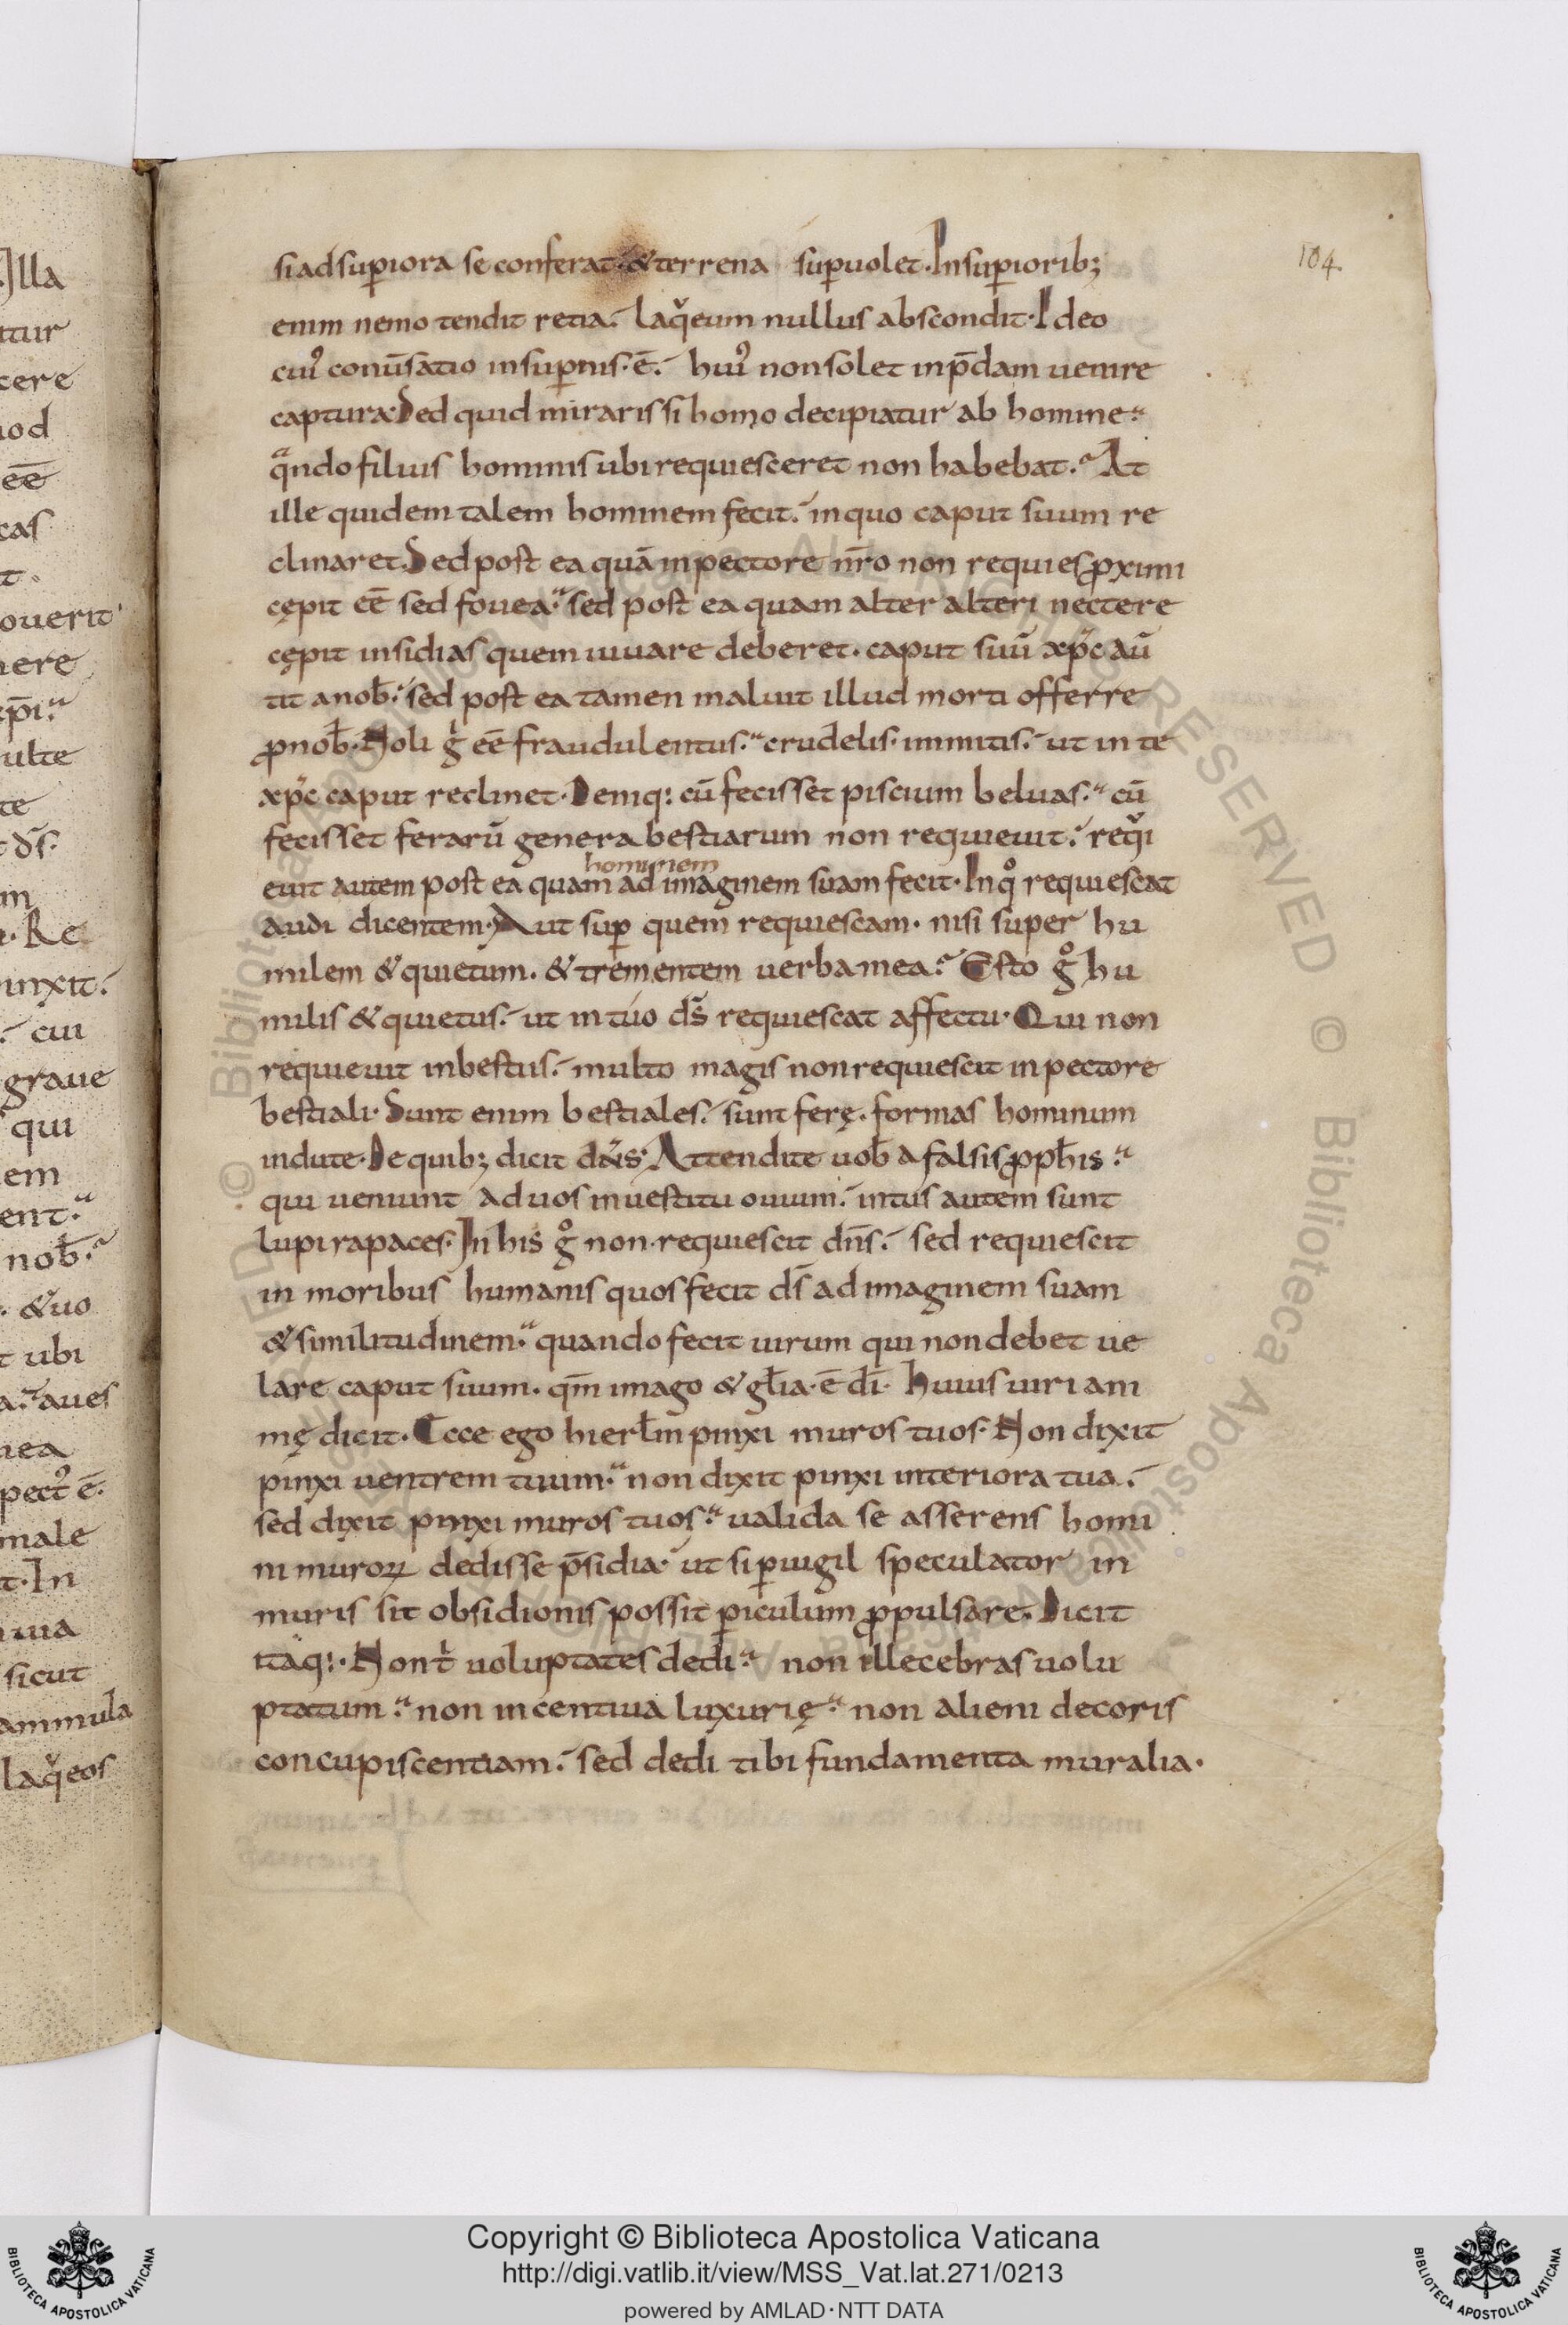 Illa
tur
cere
od
eē
cas
t.
ouerit
nere
xp̄i.
ulte
te
t d̄s.
m
. Re
unxit.
cui
graue
qui
em
ent.
nob̄.
. & uo
t ubi
a. aues
uea
pect᾽ ē.
male
t. In
ua
sicut
ammula
laq̆eos
104.
si ad sup̱iora se conferat. & terrena sup̱uolet. In sup̱iorib;
enim nemo tendit retia. laq̆eum nullus abscondit. Ideo
cui᾽ conūsatio in sup̱nis. ē. hui᾽ non solet in p̄dam uenire
captura. Sed quid miraris si homo decipiatur ab homine.
qͣndo filius hominis ubi requiesceret non habebat. At
ille quidem talem hominem fecit. in quo caput suum re
clinaret. Sed post ea quā in pectore nr̄o non requies ꝓximi
cępit eē sed fouea. sed post ea quam alter alteri nectere
cępit insidias quem iuuare deberet. caput suū xp̄c aū
tit a nob̄. sed post ea tamen maluit illud morti offerre
ꝓ nob̄. Noli gͥ eē fraudulentus. crudelis. immitis. ut in te
xp̄c caput reclinet. Deniq: cū fecisset piscium beluas. cū
fecisset ferarū genera bestiarum non requieuit. req̆i
euit autem post ea quam hominem ad imaginem suam fecit. In qͦ requiescat
audi dicentem. Aut sup̱ quem requiescam. nisi super hu
milem & quietum. & trementem uerba mea. Esto gͦ hu
milis & quietus. ut in tuo d̄s requiescat affectu. Qui non
requieuit in bestiis. multo magis non requiescit in pectore
bestiali. Sunt enim bestiales. sunt ferę. formas hominum
indute. De quib; dicit dn̄s. Attendite uob̄ a falsis ꝓph̄is.
qui ueniunt ad uos in uestitu ouium. intus autem sunt
lupi rapaces. In his gͦ non requiescit dn̄s. sed requiescit
in moribus humanis quos fecit d̄s ad imaginem suam
& similitudinem. quando fecit uirum qui non debet ue
lare caput suum. qm̄ imago & gl̄ia. ē d̄i. huius uiri ani
mę dicit. Ecce ego hierl̄m pinxi muros tuos. Non dixit
pinxi uentrem tuum. non dixit pinxi interiora tua.
sed dixit pinxi muros tuos. ualida se asserens homi
ni muroꝝ dedisse p̄sidia. ut si p̱uigil speculator in
muris sit obsidionis possit p̱iculum ꝓpulsare. Dicit
itaq:. Non tͥ uoluptates dedi. non illecebras uolu
ptatum. non incentiua luxurię. non alieni decoris
concupiscentiam. sed dedi tibi fundamenta muralia.
© Biblioteca Apostolica Vaticana ALL RIGHTS RESERVED © Biblioteca Apostolica Vaticana ALL RIGHTS RESERVED
Copyright © Biblioteca Apostolica Vaticana
http://digi.vatlib.it/view/MSS_Vat.lat.271/0213
powered by AMLAD·NTT DATA
BIBLIOTECA APOSTOLICA VATICANA
BIBLIOTECA APOSTOLICA VATICANA